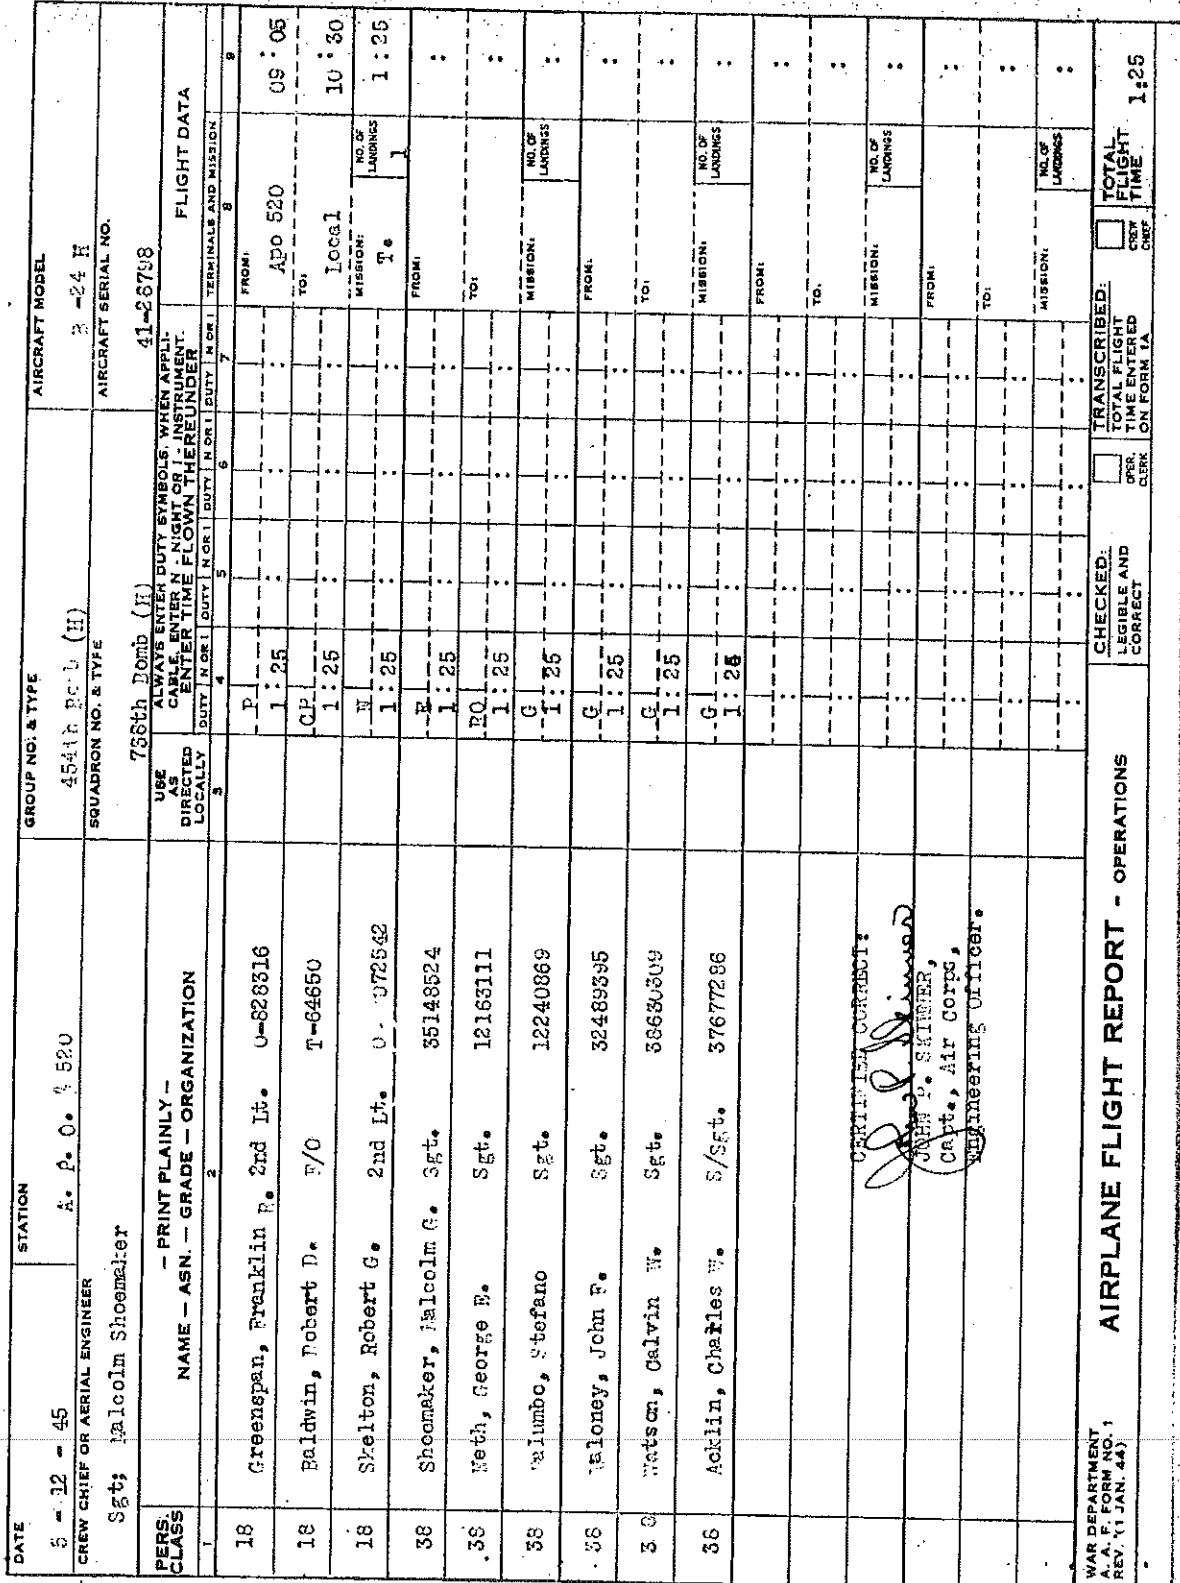 DATE
5 - 12 - 45
STATION
A. P. O. # 520
GROUP NO. & TYPE
454th Bomb (H)
AIRCRAFT MODEL
B -24 H
CREW CHIEF OR AERIAL ENGINEER
Sgt; Malcolm Shoemaker
SQUADRON NO. & TYPE
738th Bomb (H)
AIRCRAFT SERIAL NO.
41-28798
PERS. CLASS
— PRINT PLAINLY —
NAME — ASN. — GRADE — ORGANIZATION
USE AS DIRECTED LOCALLY
ALWAYS ENTER DUTY SYMBOLS, WHEN APPLI-
CABLE, ENTER N - NIGHT OR I - INSTRUMENT.
ENTER TIME FLOWN THEREUNDER
FLIGHT DATA
DUTY N OR I DUTY N OR I DUTY N OR I DUTY N OR I TERMINALS AND MISSION
1 2 3 4 5 6 7 8 9
18 Greenspan, Franklin 2nd Lt. O-828316 P 1:25 FROM: Apo 520 09:05
18 Baldwin, Robert D. F/O T-64650 CP 1:25 TO: Local 10:30
18 Skelton, Robert G. 2nd Lt. 1:25 MISSION: T. NO. OF LANDINGS 1 1:25
38 Shoemaker, Malcolm G. Sgt. 35148524 E 1:25 FROM: :
38 George E. Sgt. 12163111 RO 1:25 TO: :
38 Palumbo, Stefano Sgt. 12240869 G 1:25 MISSION: NO. OF LANDINGS :
38 Maloney, John F. Sgt. 32489395 G 1:25 FROM: :
38 Watson, Calvin W. Sgt. G 1:25 TO: :
38 Acklin, Charles W. S/Sgt. 37677286 G 1:25 MISSION: NO. OF LANDINGS :
FROM: :
TO. :
CERTIFIED CORRECT: MISSION: NO. OF LANDINGS :
JOHN P. SKINNER, FROM: :
Capt., Air Corps,
Engineering Officer. TO: :
MISSION: NO. OF LANDINGS :
WAR DEPARTMENT
A. A. F. FORM NO. 1
REV. (1 JAN. 44)
AIRPLANE FLIGHT REPORT - OPERATIONS
CHECKED:
LEGIBLE AND CORRECT
OPER. CLERK
TRANSCRIBED:
TOTAL FLIGHT TIME ENTERED ON FORM 1A
CREW CHIEF
TOTAL FLIGHT TIME 1:25